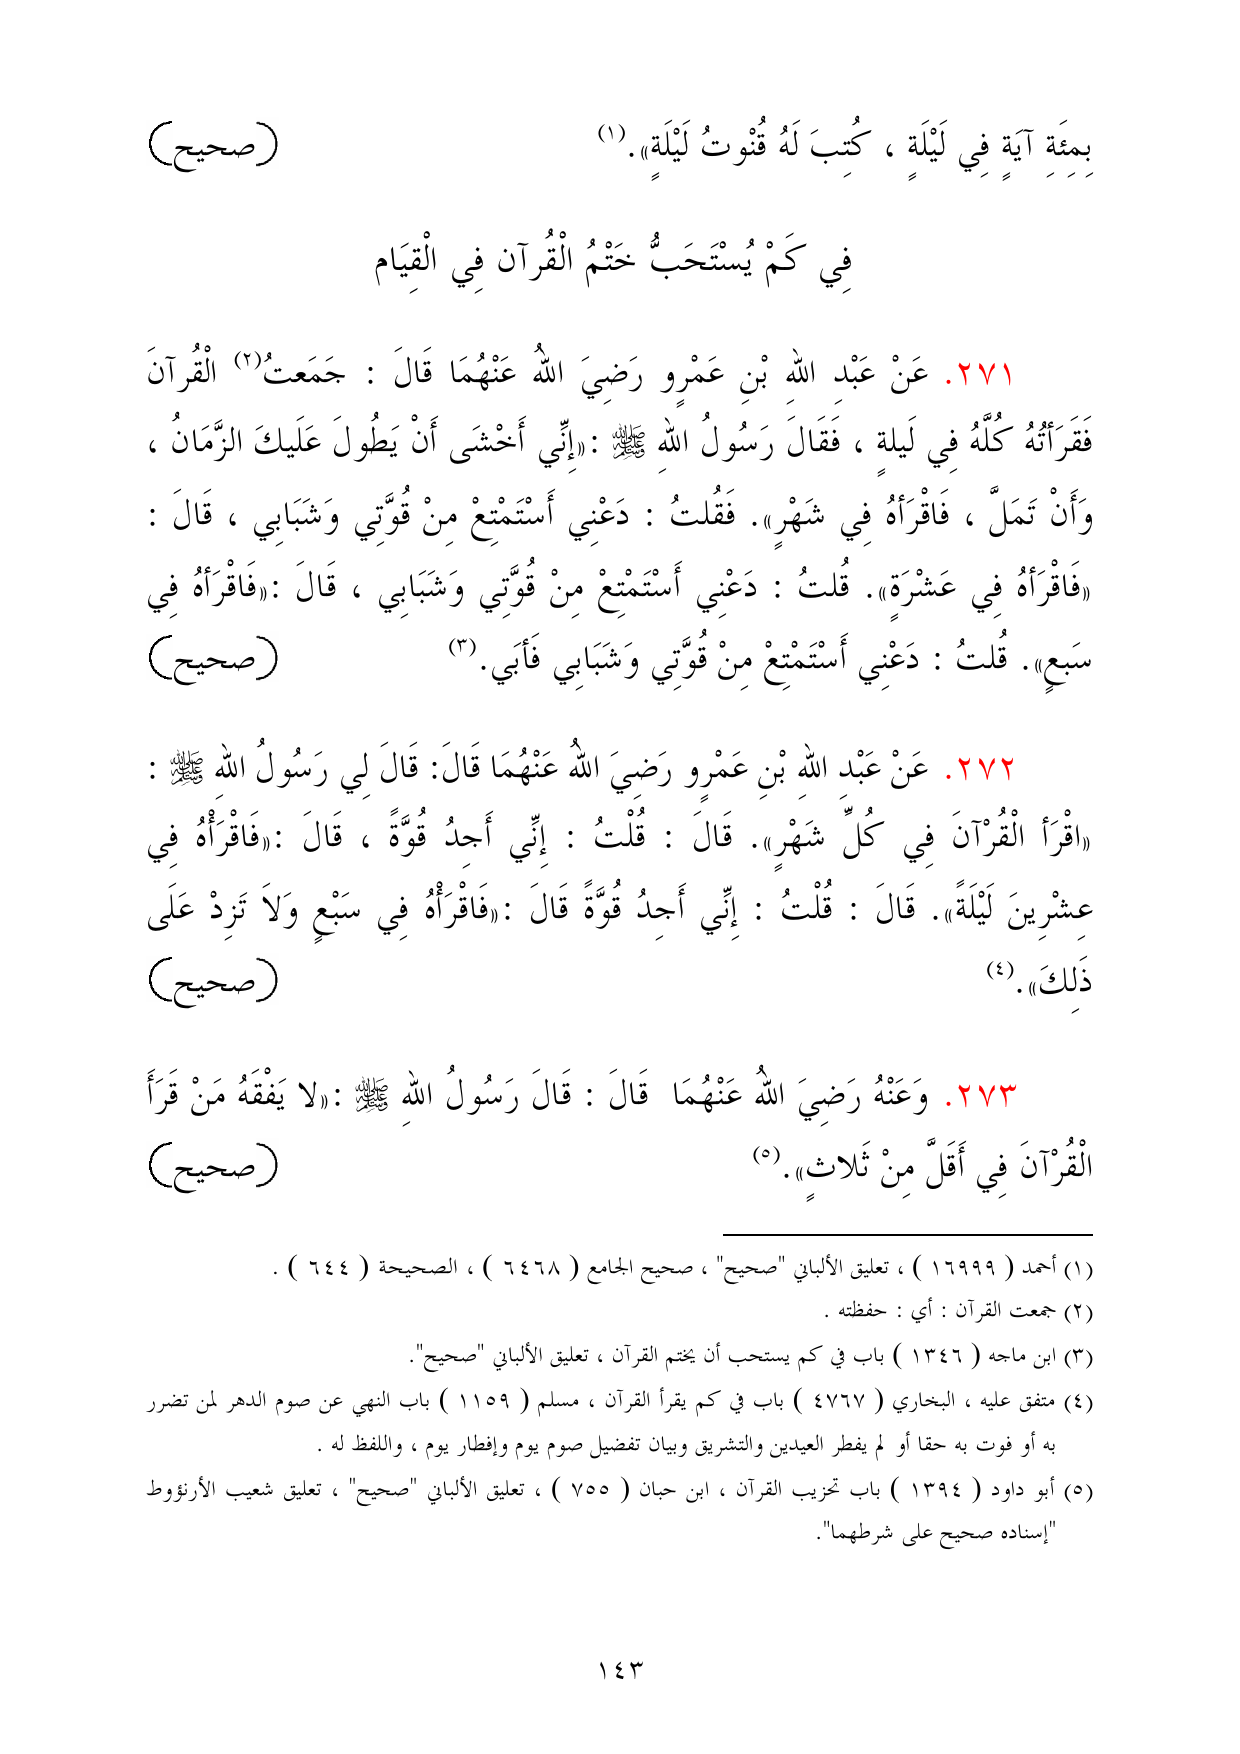 بِمِئَةِ آيَةٍ فِي لَيْلَةٍ ، كُتِبَ لَهُ قُنْوتُ لَيْلَةٍ».(١) (صحيح)
فِي كَمْ يُسْتَحَبُّ خَتْمُ الْقُرآن فِي الْقِيَام
٢٧١. عَنْ عَبْدِ اللهِ بْنِ عَمْرٍو رَضِيَ اللهُ عَنْهُمَا قَالَ : جَمَعتُ(٢) الْقُرآنَ
فَقَرَأتُهُ كُلَّهُ فِي لَيلةٍ ، فَقَالَ رَسُولُ اللهِ ﷺ :«إِنِّي أَخْشَى أَنْ يَطُولَ عَلَيكَ الزَّمَانُ ،
وَأَنْ تَمَلَّ ، فَاقْرَأهُ فِي شَهْرٍ». فَقُلتُ : دَعْنِي أَسْتَمْتِعْ مِنْ قُوَّتِي وَشَبَابِي ، قَالَ :
«فَاقْرَأهُ فِي عَشْرَةٍ». قُلتُ : دَعْنِي أَسْتَمْتِعْ مِنْ قُوَّتِي وَشَبَابِي ، قَالَ :«فَاقْرَأهُ فِي
سَبعٍ». قُلتُ : دَعْنِي أَسْتَمْتِعْ مِنْ قُوَّتِي وَشَبَابِي فَأبَي.(٣) (صحيح)
٢٧٢. عَنْ عَبْدِ اللهِ بْنِ عَمْرٍو رَضِيَ اللهُ عَنْهُمَا قَالَ: قَالَ لِي رَسُولُ اللهِ ﷺ :
«اقْرَأ الْقُرْآنَ فِي كُلِّ شَهْرٍ». قَالَ : قُلْتُ : إِنِّي أَجِدُ قُوَّةً ، قَالَ :«فَاقْرَأْهُ فِي
عِشْرِينَ لَيْلَةً». قَالَ : قُلْتُ : إِنِّي أَجِدُ قُوَّةً قَالَ :«فَاقْرَأْهُ فِي سَبْعٍ وَلاَ تَزِدْ عَلَى
ذَلِكَ».(٤) (صحيح)
٢٧٣. وَعَنْهُ رَضِيَ اللهُ عَنْهُمَا قَالَ : قَالَ رَسُولُ اللهِ ﷺ :«لا يَفْقَهُ مَنْ قَرَأَ
الْقُرْآنَ فِي أَقَلَّ مِنْ ثَلاثٍ».(٥) (صحيح)
(١) أحمد ( ١٦٩٩٩ ) ، تعليق الألباني "صحيح" ، صحيح الجامع ( ٦٤٦٨ ) ، الصحيحة ( ٦٤٤ ) .
(٢) جمعت القرآن : أي : حفظته .
(٣) ابن ماجه ( ١٣٤٦ ) باب في كم يستحب أن يختم القرآن ، تعليق الألباني "صحيح".
(٤) متفق عليه ، البخاري ( ٤٧٦٧ ) باب في كم يقرأ القرآن ، مسلم ( ١١٥٩ ) باب النهي عن صوم الدهر لمن تضرر
به أو فوت به حقا أو لم يفطر العيدين والتشريق وبيان تفضيل صوم يوم وإفطار يوم ، واللفظ له .
(٥) أبو داود ( ١٣٩٤ ) باب تحزيب القرآن ، ابن حبان ( ٧٥٥ ) ، تعليق الألباني "صحيح" ، تعليق شعيب الأرنؤوط
"إسناده صحيح على شرطهما".
١٤٣